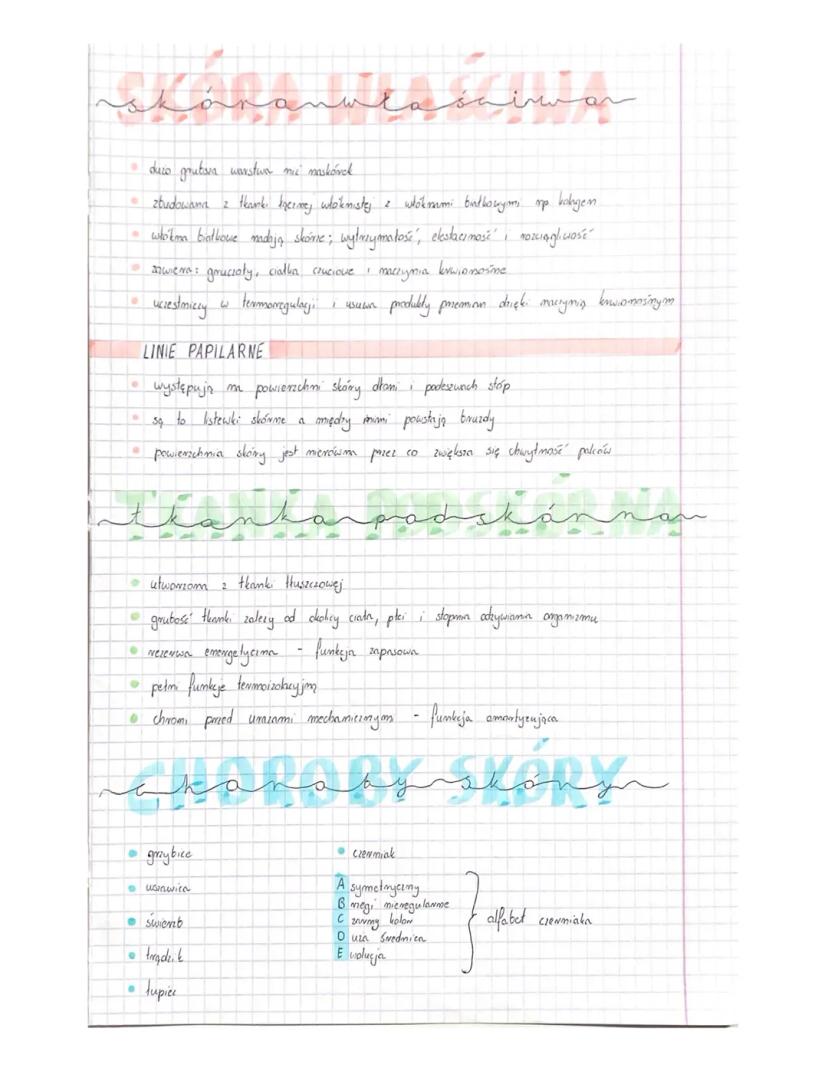 SKÓRA WŁAŚCIWA
skóra właściwa
dużo grubsza warstwa niż naskórek
zbudowana z tkanki łącznej włóknistej z włóknami białkowymi np kolagen
włókna białkowe nadają skórze; wytrzymałość, elastaczność i rozciągliwość
zawiera: gruczoły, ciałka czuciowe i naczynia krwionośne
uczestniczy w termoregulacji i usuwa produkty przemian dzięki naczynią krwionośnym
LINIE PAPILARNE
występują na powierzchni skóry dłoni i podeszwach stóp
są to listewki skórne a między nimi powstają bruzdy
powierzchnia skóry jest nierówna przez co zwiększa się chwytność palców
TKANKA PODSKÓRNA
tkanka podskórna
utworzona z tkanki tłuszczowej
grubość tkanki zależy od okolicy ciała, płci i stopnia odżywiania organizmu
rezerwa energetyczna - funkcja zapasowa
pełni funkcje termoizolacyjną
chroni przed urazami mechanicznymi - funkcja amortyzująca
CHOROBY SKÓRY
choroby skóry
grzybice
usznawica
świerzb
trądzik
łupież
czerniak
Asymetryczny
Bregi nieregularne
Czarny kolor
Duża średnica
Ewolucja
alfabet czerniaka